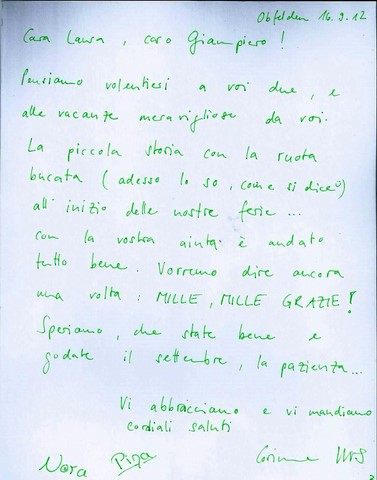 Obfelden 16.9.12
Cara Laura, caro Giampiero!
Pensiamo volentiesi a voi due, e
alle vacanze meravigliose da voi.
La piccola storia con la ruota
bucata (adesso lo so, come si dice☺)
all'inizio delle nostre ferie...
con la vostra aiuta è andato
tutto bene. Vorremo dire ancora
una volta: MILLE, MILLE GRAZIE!
Speriamo, che state bene e
godate il settembre, la pazienza...
Vi abbracciamo e vi mandiamo
cordiali saluti
Nora Piza Corinne